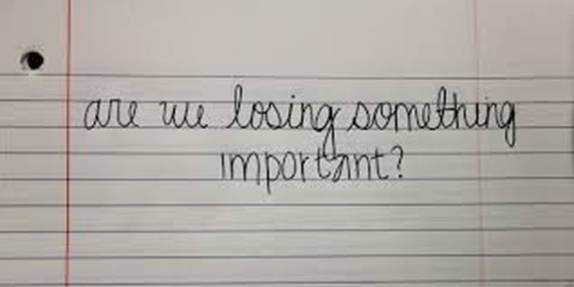 are we losing something
important?